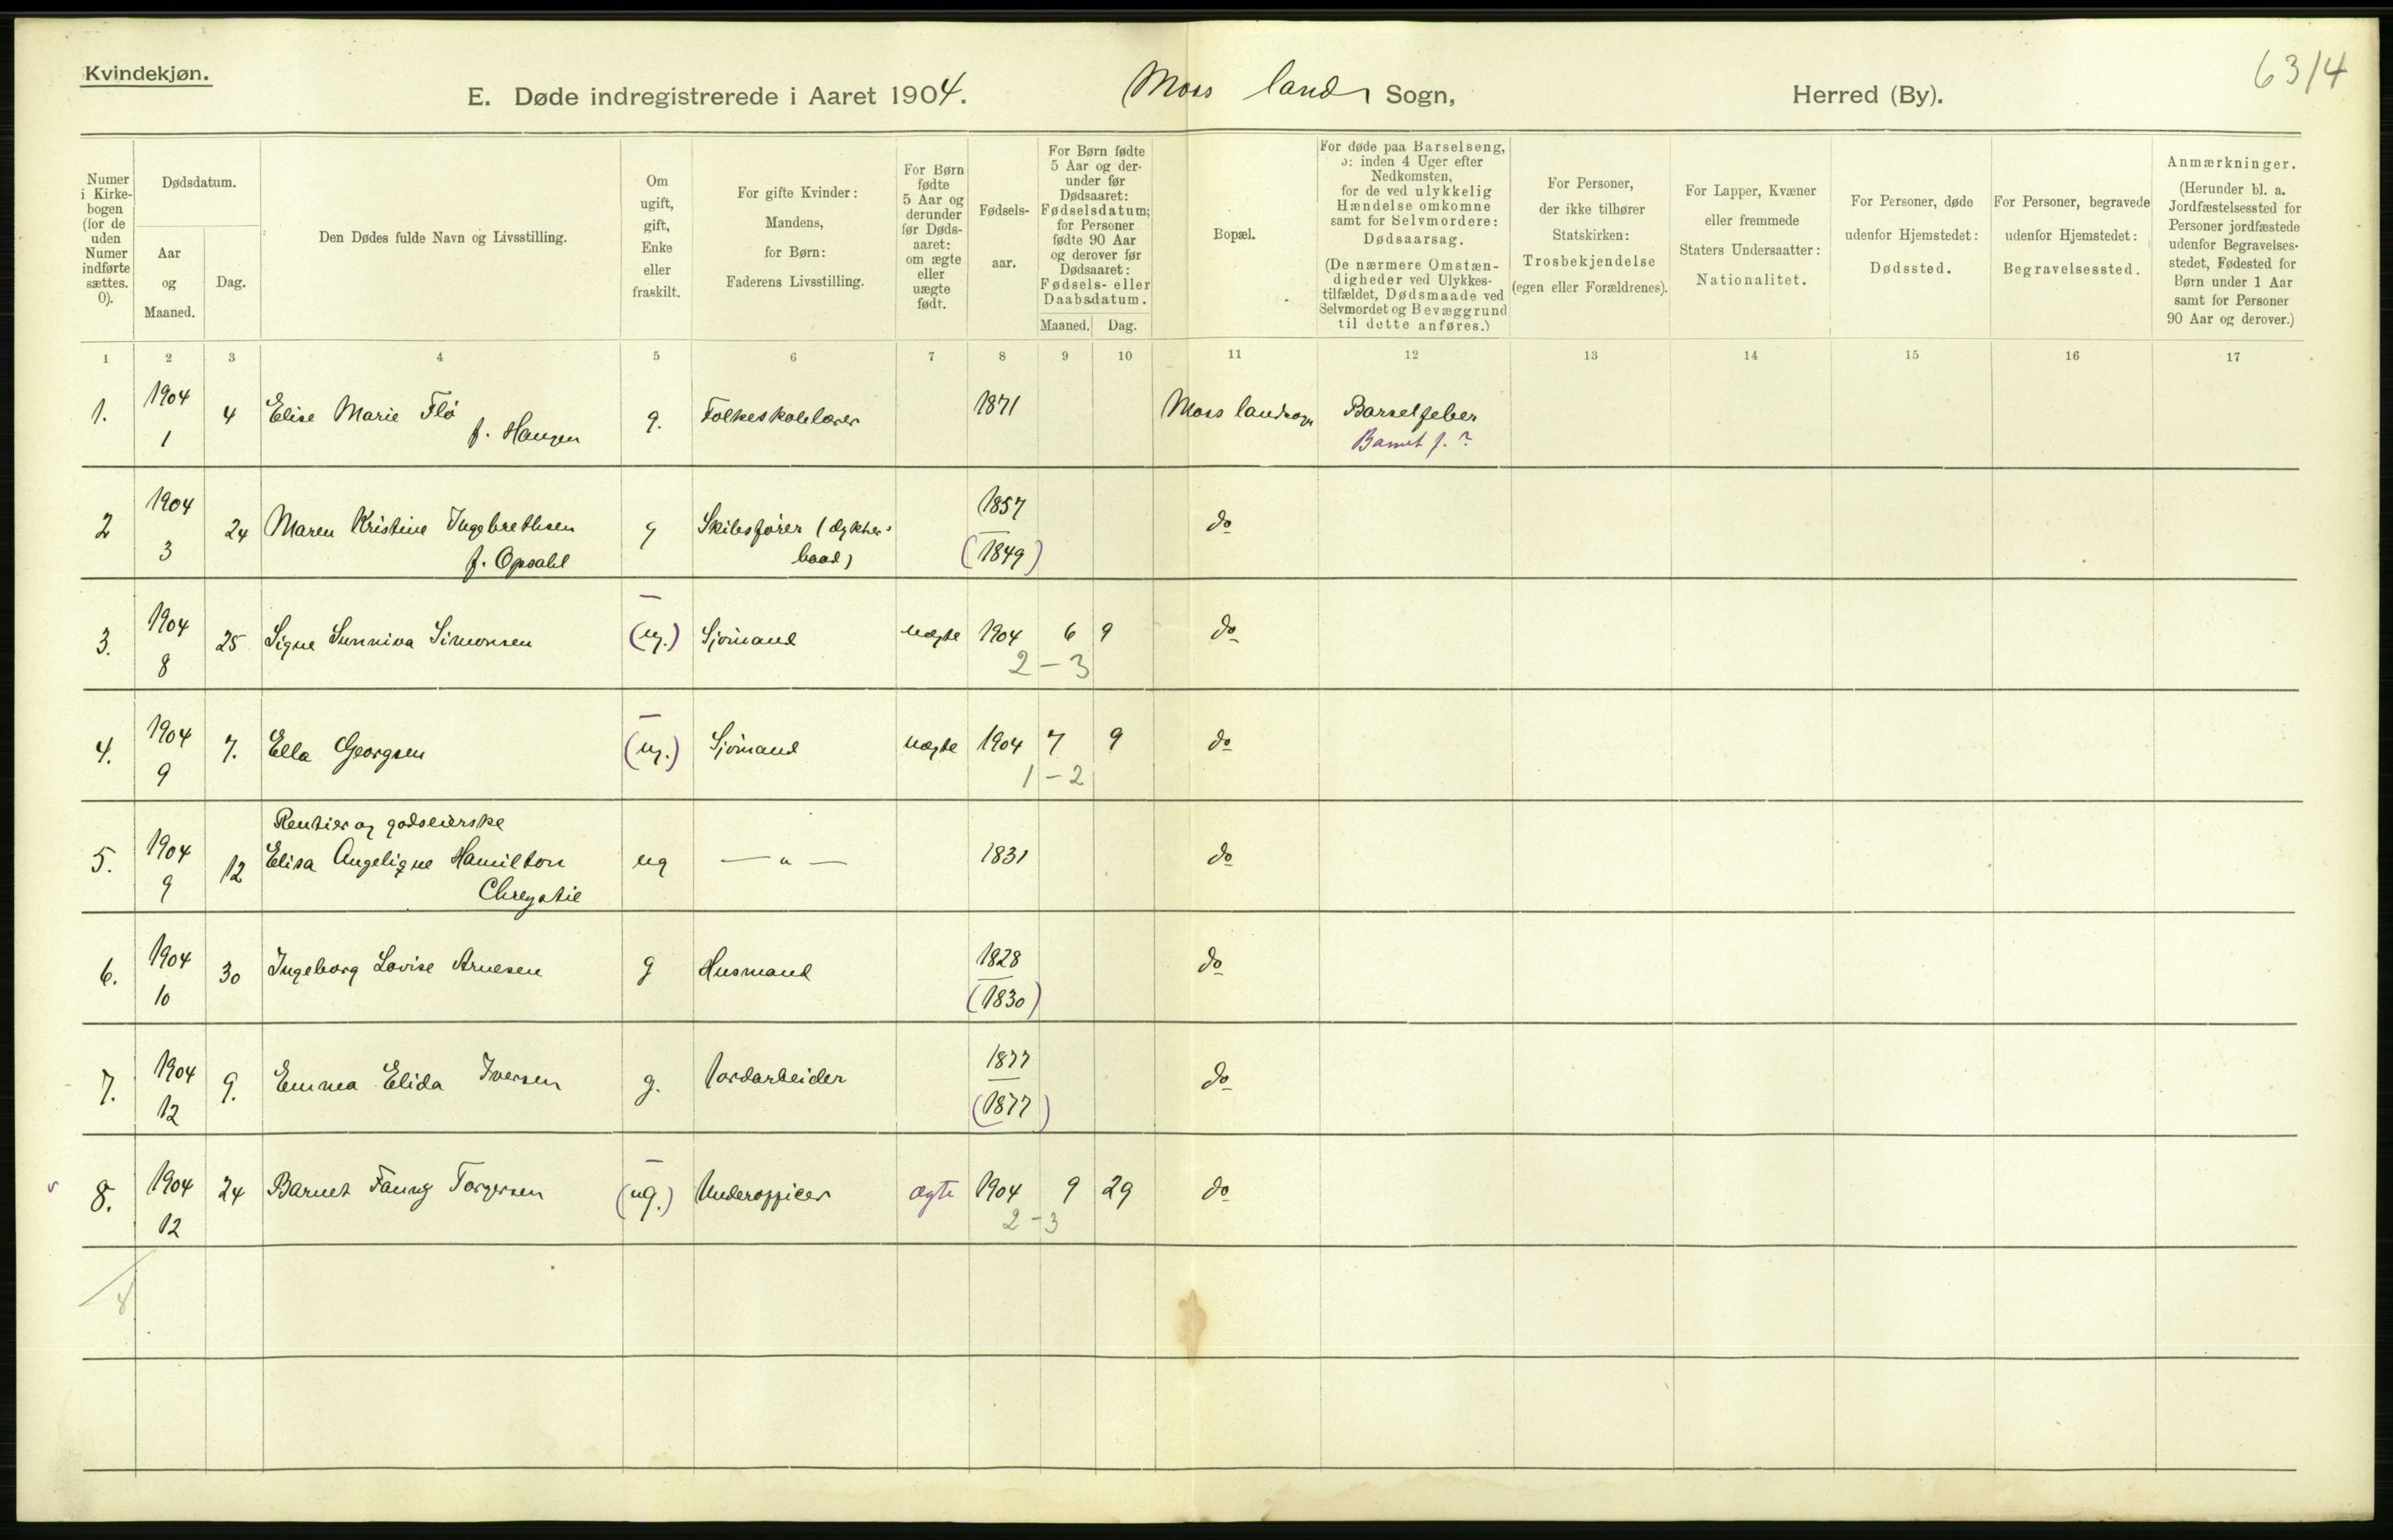 Kvindekjøn.
E. Døde indregistrerede i Aaret 1904. Moss lands Sogn, Herred (By). 63/4
Numer i Kirkebogen (for de uden Numer indførte sættes. O).
Dødsdatum.
Aar og Maaned.
Dag.
Den Dødes fulde Navn og Livsstilling.
Om ugift, gift, Enke eller fraskilt.
For gifte Kvinder: Mandens, for Børn: Faderens Livsstilling.
For Børn fødte 5 Aar og derunder før Dødsaaret: om ægte eller uægte født.
Fødselsaar.
For Børn fødte 5 Aar og derunder før Dødsaaret: Fødselsdatum; for Personer fødte 90 Aar og derover før Dødsaaret: Fødsels- eller Daabsdatum.
Maaned. Dag.
Bopæl.
For døde paa Barselseng, ɔ: inden 4 Uger efter Nedkomsten, for de ved ulykkelig Hændelse omkomne samt for Selvmordere: Dødsaarsag. (De nærmere Omstændigheder ved Ulykkestilfældet, Dødsmaade ved Selvmordet og Bevæggrund til dette anføres.)
For Personer, der ikke tilhører Statskirken: Trosbekjendelse (egen eller Forældrenes).
For Lapper, Kvæner eller fremmede Staters Undersaatter: Nationalitet.
For Personer, døde udenfor Hjemstedet: Dødssted.
For Personer, begravede udenfor Hjemstedet: Begravelsessted.
Anmærkninger. (Herunder bl. a. Jordfæstelsessted for Personer jordfæstede udenfor Begravelsesstedet, Fødested for Børn under 1 Aar samt for Personer 90 Aar og derover.)
1 2 3 4 5 6 7 8 9 10 11 12 13 14 15 16 17
1. 1904 1 4 Elise Marie Flö f. Haugen g. Folkeskolelærer 1871 Moss landsogn Barselfeber
Barnet f. ?
2 1904 3 24 Maren Kristine Ingebrethsen f. Opsahl g Skibsfører (dykkerbaad) 1857 (1849) do
3. 1904 8 25 Signe Sunniva Simonsen (ug.) Sjömand uægte 1904 6 9 do
2 - 3
4. 1904 9 7. Ella Georgsen (ug.) Sjömand uægte 1904 7 9 do
1 - 2
Rentier og godseierske
5. 1904 9 12 Elisa Angelique Hamilton Chrystie ug — " — 1831 do
6. 1904 10 30 Ingeborg Lovise Arnesen g Husmand 1828 (1830) do
7. 1904 12 9. Emma Elida Iversen g. Jordarbeider 1877 (1877) do
8. 1904 12 24 Barnet Fanny Torgersen (ug.) Underofficer ægte 1904 9 29 do
2 - 3
8